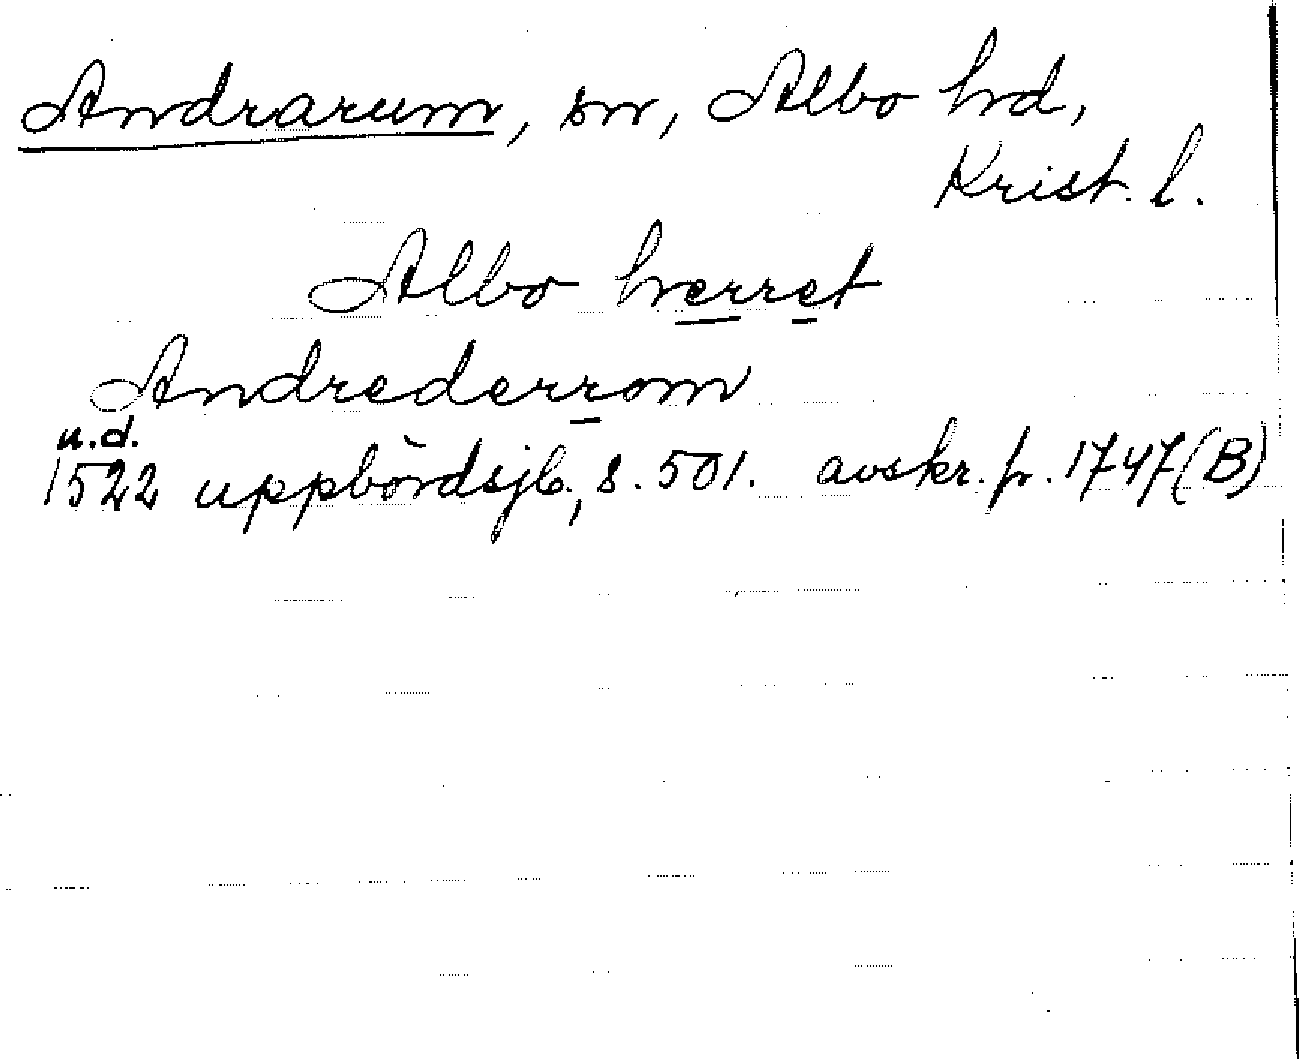 Andrarum, sn, Albo hd,
Krist. l.
Albo herret
Andrederrom
u.d.
1522 uppbördsjb., s. 501. avskr. fr. 1747 (B)